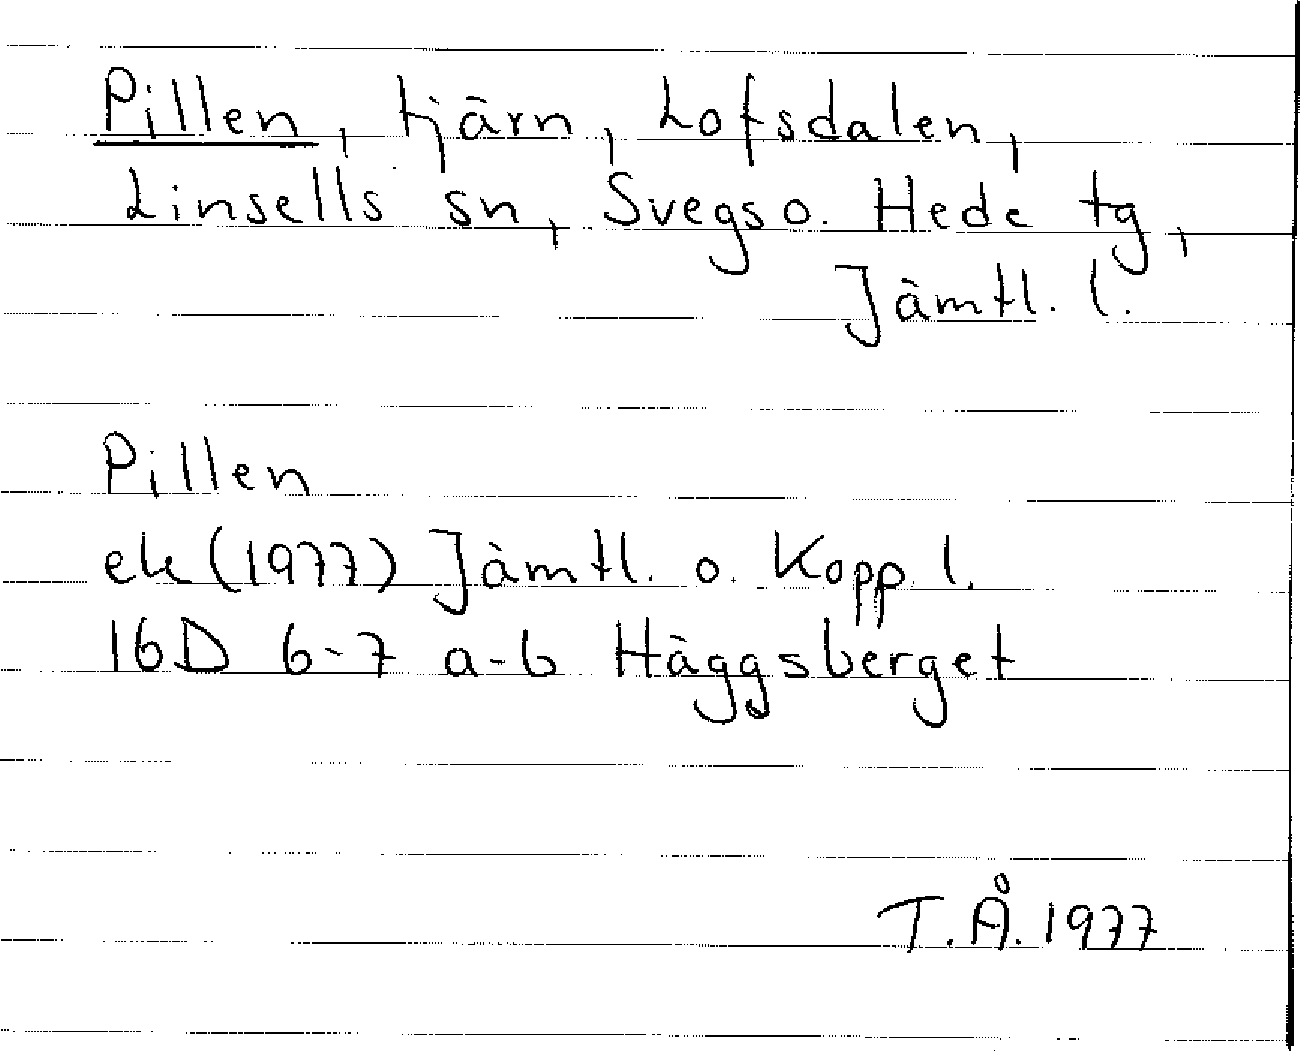 Pillen, tjärn, Lofsdalen,
Linsells sn, Svegs o. Hede tg,
Jämtl. l.
Pillen
ek (1977) Jämtl. o. Kopp. l.
16D 6-7 a-b Häggsberget
T.Å. 1977